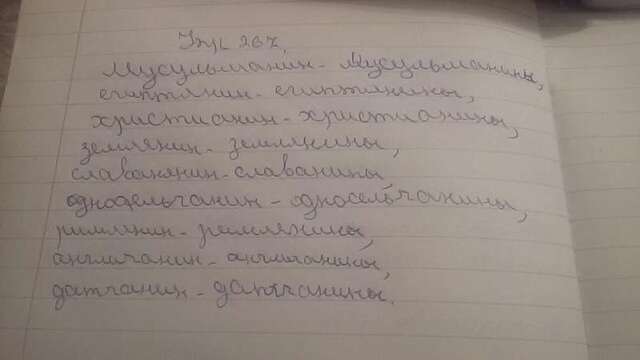 Упр 267.
Мусульманин - Мусульманины,
египтянин - египтянины,
христианин - христианины,
землянин - землянины,
славанянин - славанины
односельчанин - односельчанины,
римлянин - римлянины,
англичанин - англичанины,
датчанин - датчанины.